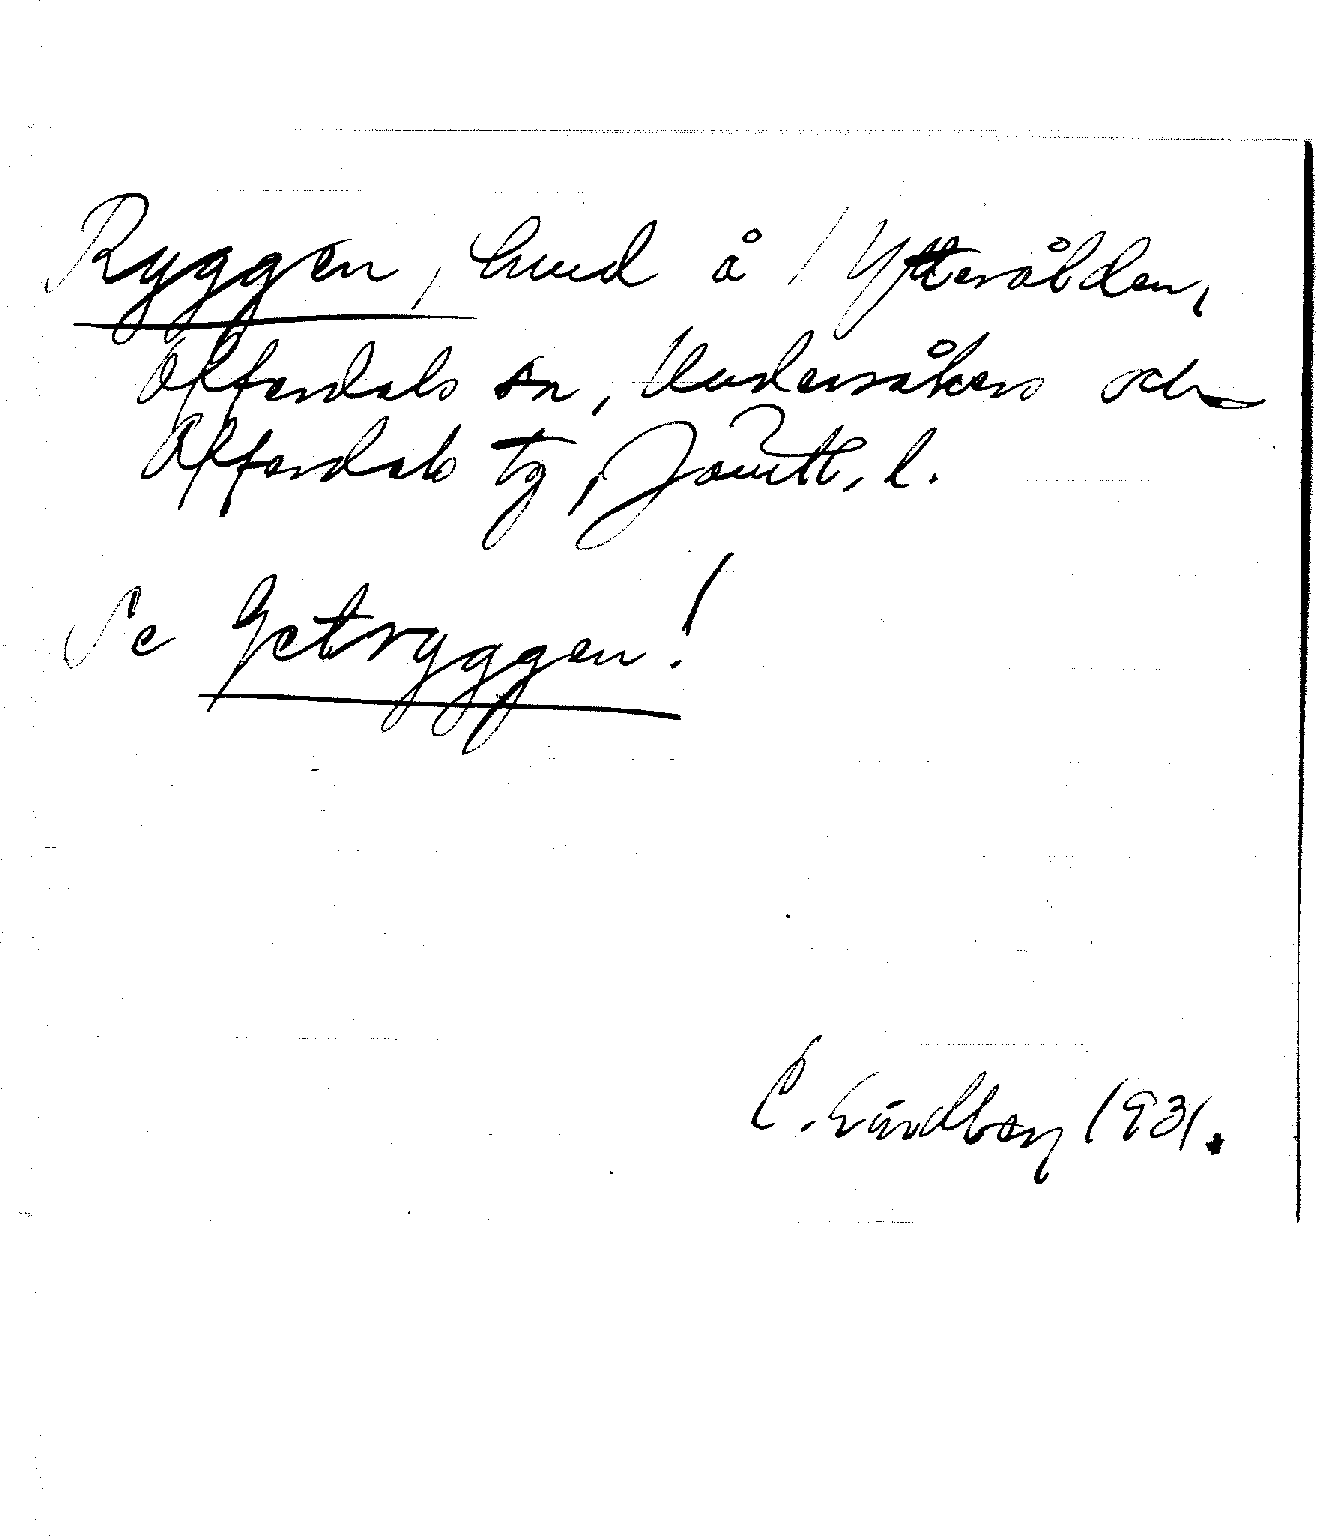 Ryggen, lund å 1 Ytterålden,
Offerdals sn, Undersåkers och
Offerdals tg, Jämtl. l.
Se Getryggen!
C. Lindberg 1931.